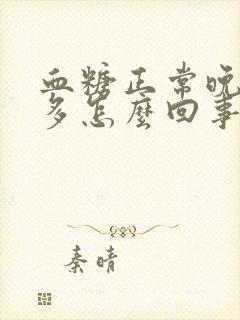 血糖正常晚
多怎麼回事
秦晴